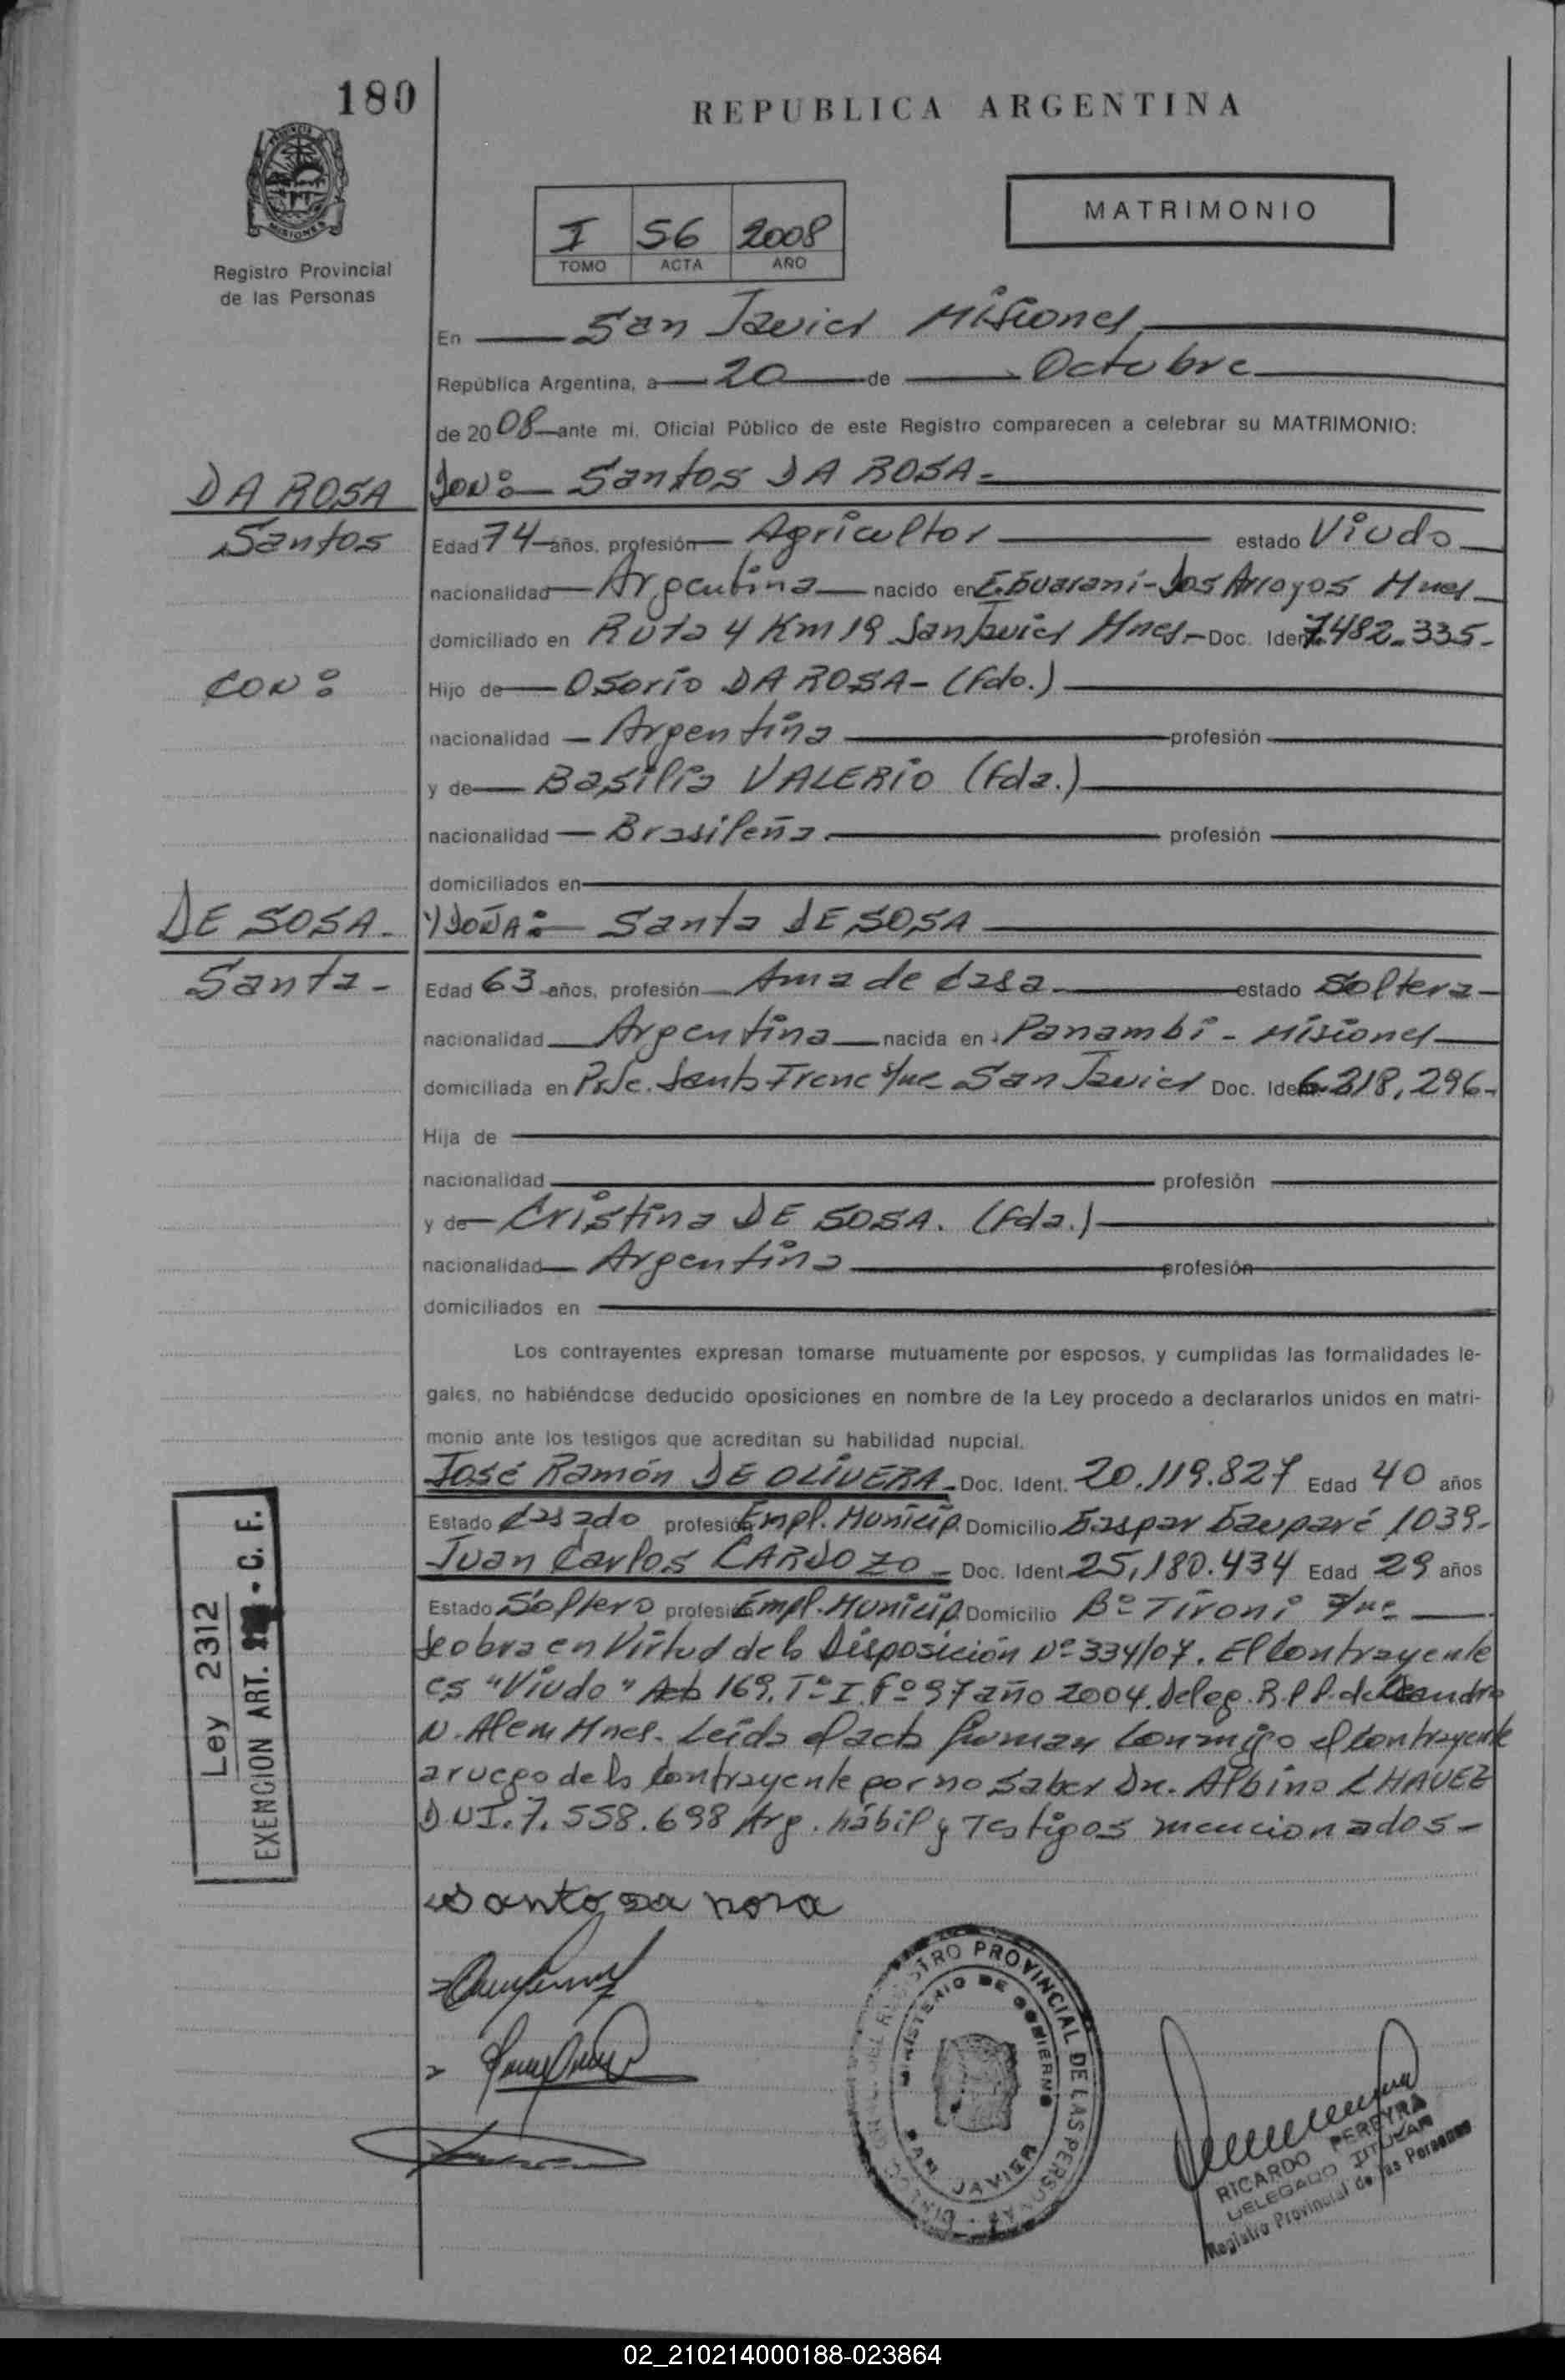 180
REPUBLICA ARGENTINA
PROVINCIA DE
MISIONES
Registro Provincial
de las Personas
MATRIMONIO
I 56 2008
TOMO ACTA AÑO
En San Javier Misiones
República Argentina, a 20 de Octubre
de 2008 ante mi, Oficial Público de este Registro comparecen a celebrar su MATRIMONIO:
DA ROSA
Santos
DON: Santos DA ROSA.-
Edad 74 años, profesión Agricultor estado Viudo
nacionalidad Argentina nacido en G. Guaraní-Los Arroyos Mnes
domiciliado en Ruta 4 Km 19 San Javier Mnes.- Doc. Ident. 7.482.335.-
CON:
Hijo de Osorio DA ROSA- (Fdo.)
nacionalidad Argentina profesión
y de Basilia VALERIO (Fda.)
nacionalidad Brasileña. profesión
domiciliados en
DE SOSA.-
Santa-
Y DOÑA: Santa DE SOSA
Edad 63 años, profesión Ama de Casa estado Soltera-
nacionalidad Argentina nacida en Panambi - Misiones
domiciliada en Santo Irene San Javier Doc. Ident. 6.218.296-
Hija de
nacionalidad profesión
y de Cristina DE SOSA. (Fda.)
nacionalidad Argentina profesión
domiciliados en
Los contrayentes expresan tomarse mutuamente por esposos, y cumplidas las formalidades le-
gales, no habiéndose deducido oposiciones en nombre de la Ley procedo a declararlos unidos en matri-
monio ante los testigos que acreditan su habilidad nupcial.
José Ramón DE OLIVERA- Doc. Ident. 20.119.827 Edad 40 años
Estado Casado profesión Empl. Municip. Domicilio Gaspar Gauparé 1039.-
Juan Carlos CARDOZO- Doc. Ident 25.180.434 Edad 29 años
Estado Soltero profesión Empl. Municip. Domicilio Bº Tironi
Se obra en Virtud de la Disposición Nº 334/07. El Contrayente
es "Viudo" Acta 169. Tº I. Fº 97 año 2004. Deleg. R.P.P. de Leandro
N. Alem Mnes. Leída el acta firman Conmigo el Contrayente
a ruego de la Contrayente por no Saber Dn. Albino CHAVEZ
D.N.I. 7.558.698 Arg. hábil y Testigos mencionados-
Ley 2312
EXENCION ART. - C. F.
Santo da rosa
REGISTRO PROVINCIAL DE LAS PERSONAS
MINISTERIO DE GOBIERNO
SAN JAVIER
RICARDO PEREYRA
DELEGADO TITULAR
Registro Provincial de las Personas
02_210214000188-023864